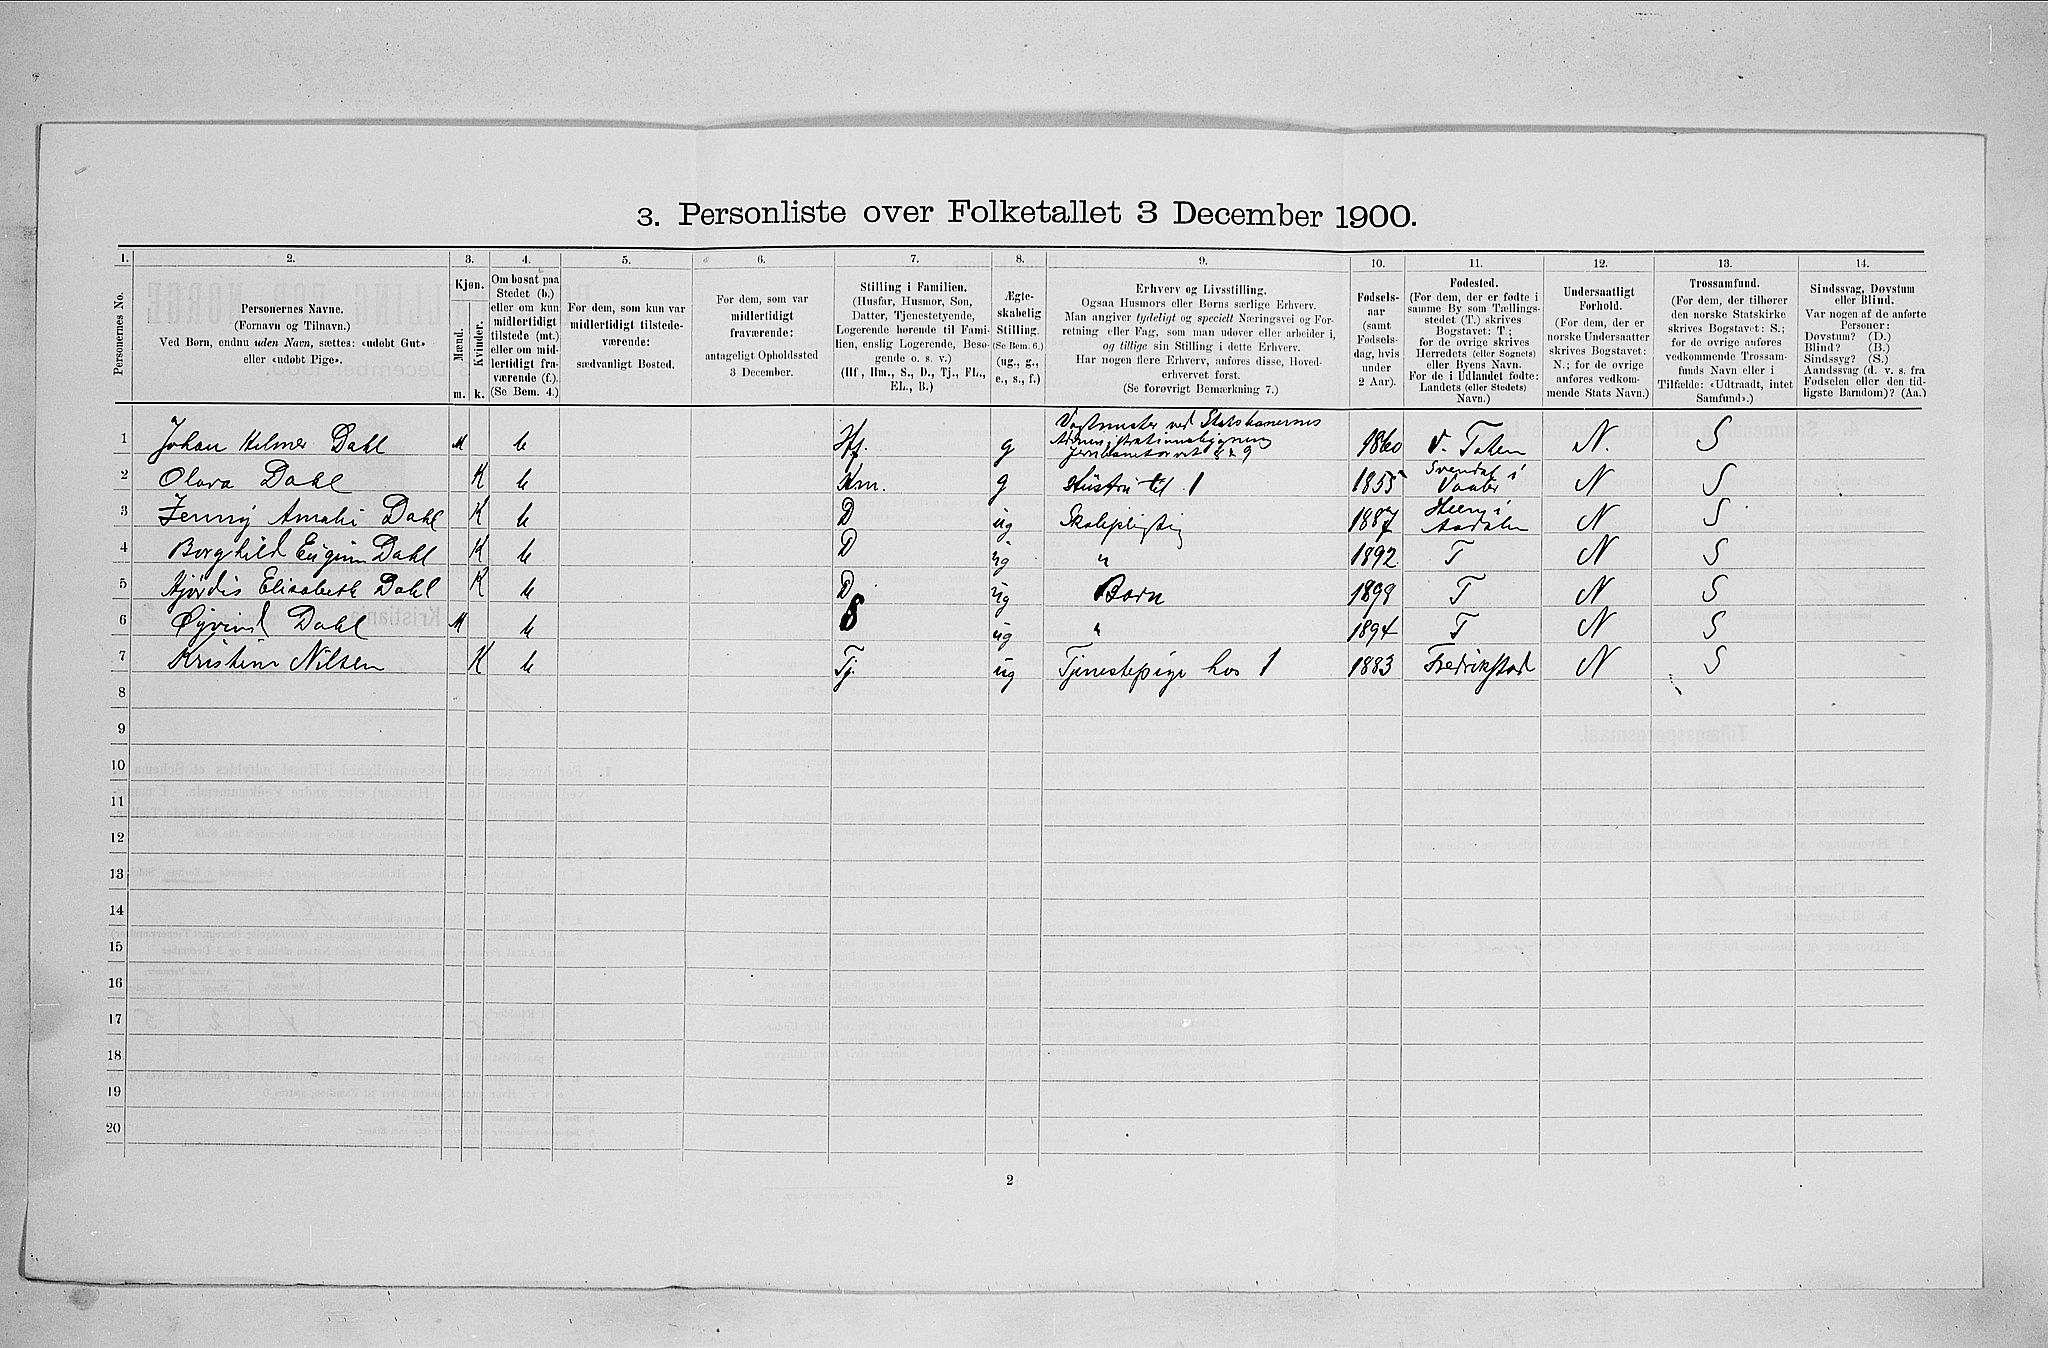 3. Personliste over Folketallet 3 December 1900.
1. 2. 3. 4. 5. 6. 7. 8. 9. 10. 11. 12. 13. 14.
Personernes No.
Personernes Navne.
(Fornavn og Tilnavn.)
Ved Born, endnu uden Navn, sættes: «udobt Gut»
eller «udobt Pige».
Kjøn.
Mænd.
Kvinder.
m. k.
Om bosat paa
Stedet (b.)
eller om kun
midlertidigt
tilstede (mt.)
eller om mid-
lertidigt fra-
værende (f.).
(Se Bem. 4.)
For dem, som kun var
midlertidigt tilstede-
værende:
sædvanligt Bosted.
For dem, som var
midlertidigt
fraværende:
antageligt Opholdssted
3 December.
Stilling i Familien.
(Husfar, Husmor, Søn,
Datter, Tjenestetyende,
Logerende hørende til Fami-
lien, enslig Logerende, Besø-
gende o. s. v.)
(Hf, Hm., S., D., Tj., FL.,
EL., B.)
Ægte-
skabelig
Stilling.
(Se Bem. 6.)
(ug., g.,
e., s., f.)
Erhverv og Livsstilling.
Ogsaa Husmors eller Børns særlige Erhverv.
Man angiver tydeligt og specielt Næringsvei og For-
retning eller Fag, som man udøver eller arbeider i,
og tillige sin Stilling i dette Erhverv.
Har nogen flere Erhverv, anføres disse, Hoved-
erhvervet først.
(Se forøvrigt Bemærkning 7.)
Fødsels-
aar
(samt
Fødsels-
dag, hvis
under
2 Aar).
Fødested.
(For dem, der er fødte i
samme By som Tællings-
stedet (T.) skrives
Bogstavet: T;
for de øvrige skrives
Herredets (eller Sognets)
eller Byens Navn.
For de i Udlandet fødte:
Landets (eller Stedets)
Navn.)
Undersaatligt
Forhold.
(For dem, der er
norske Undersaatter
skrives Bogstavet:
N.; for de øvrige
anføres vedkom-
mende Stats Navn.)
Trossamfund.
(For dem, der tilhører
den norske Statskirke
skrives Bogstavet: S.;
for de øvrige anføres
vedkommende Trossam-
funds Navn eller i
Tilfælde: «Udtraadt, intet
Samfund».)
Sindssvag, Døvstum
eller Blind.
Var nogen af de anførte
Personer:
Døvstum? (D.)
Blind? (B.)
Sindssyg? (S.)
Aandssvag (d. v. s. fra
Fødselen eller den tid-
ligste Barndom)? (Aa.)
1 Johan Helmer Dahl M b Hf. g Vagtmester ved Statsbanernes
Administrationsbygning
Jernbanetorvet 8 & 9 1860 V. Toten N. S
2 Olava Dahl K b Hm. g Hustru til 1 1855 Svendal i
Vaaler N S
3 Jenny Amalie Dahl K b D ug Skolepligtig 1887 Heen i
Aadalen N S
4 Borghild Eugenie Dahl K b D ug " 1892 T N S
5 Hjørdis Elisabeth Dahl K b D ug Barn 1898 T N S
6 Øyvind Dahl M b S ug " 1894 T N S
7 Kristine Nilsen K b Tj. ug Tjenestepige hos 1 1883 Fredrikstad N S
8
9
10
11
12
13
14
15
16
17
18
19
20
2